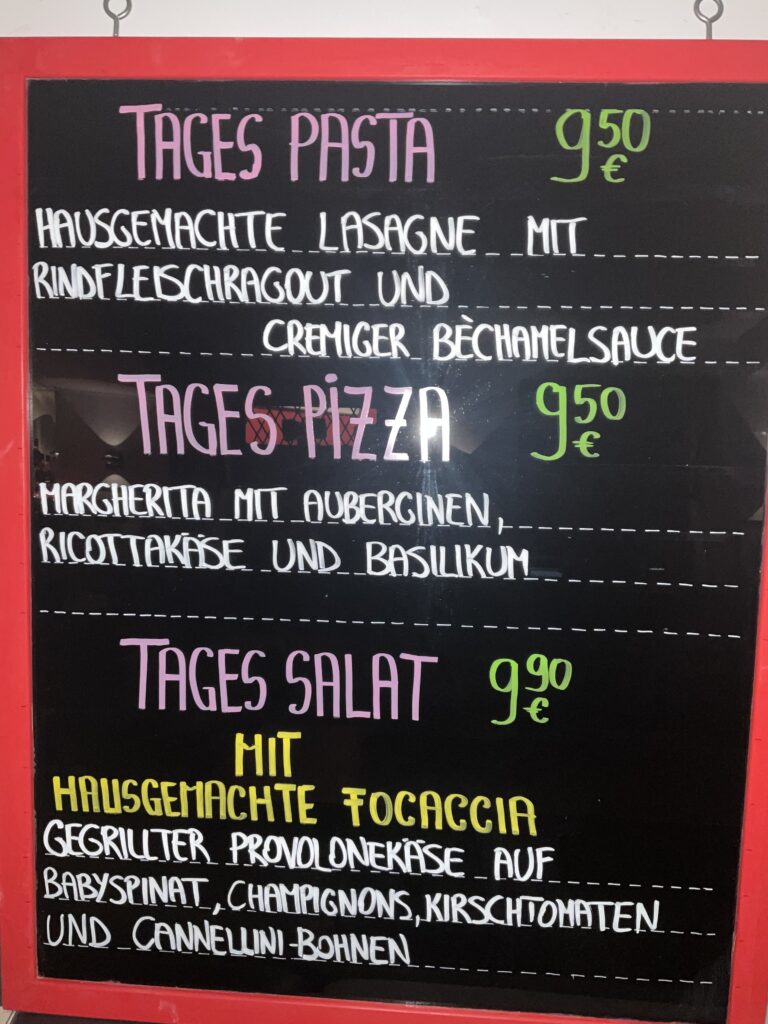 TAGES PASTA 950 €
HAUSGEMACHTE LASAGNE MIT
RINDFLEISCHRAGOUT UND
CREMIGER BÈCHAMELSAUCE
TAGES PIZZA 950 €
MARGHERITA MIT AUBERGINEN,
RICOTTAKÄSE UND BASILIKUM
TAGES SALAT 990 €
MIT
HAUSGEMACHTE FOCACCIA
GEGRILLTER PROVOLONEKÄSE AUF
BABYSPINAT, CHAMPIGNONS, KIRSCHTOMATEN
UND CANNELLINI-BOHNEN